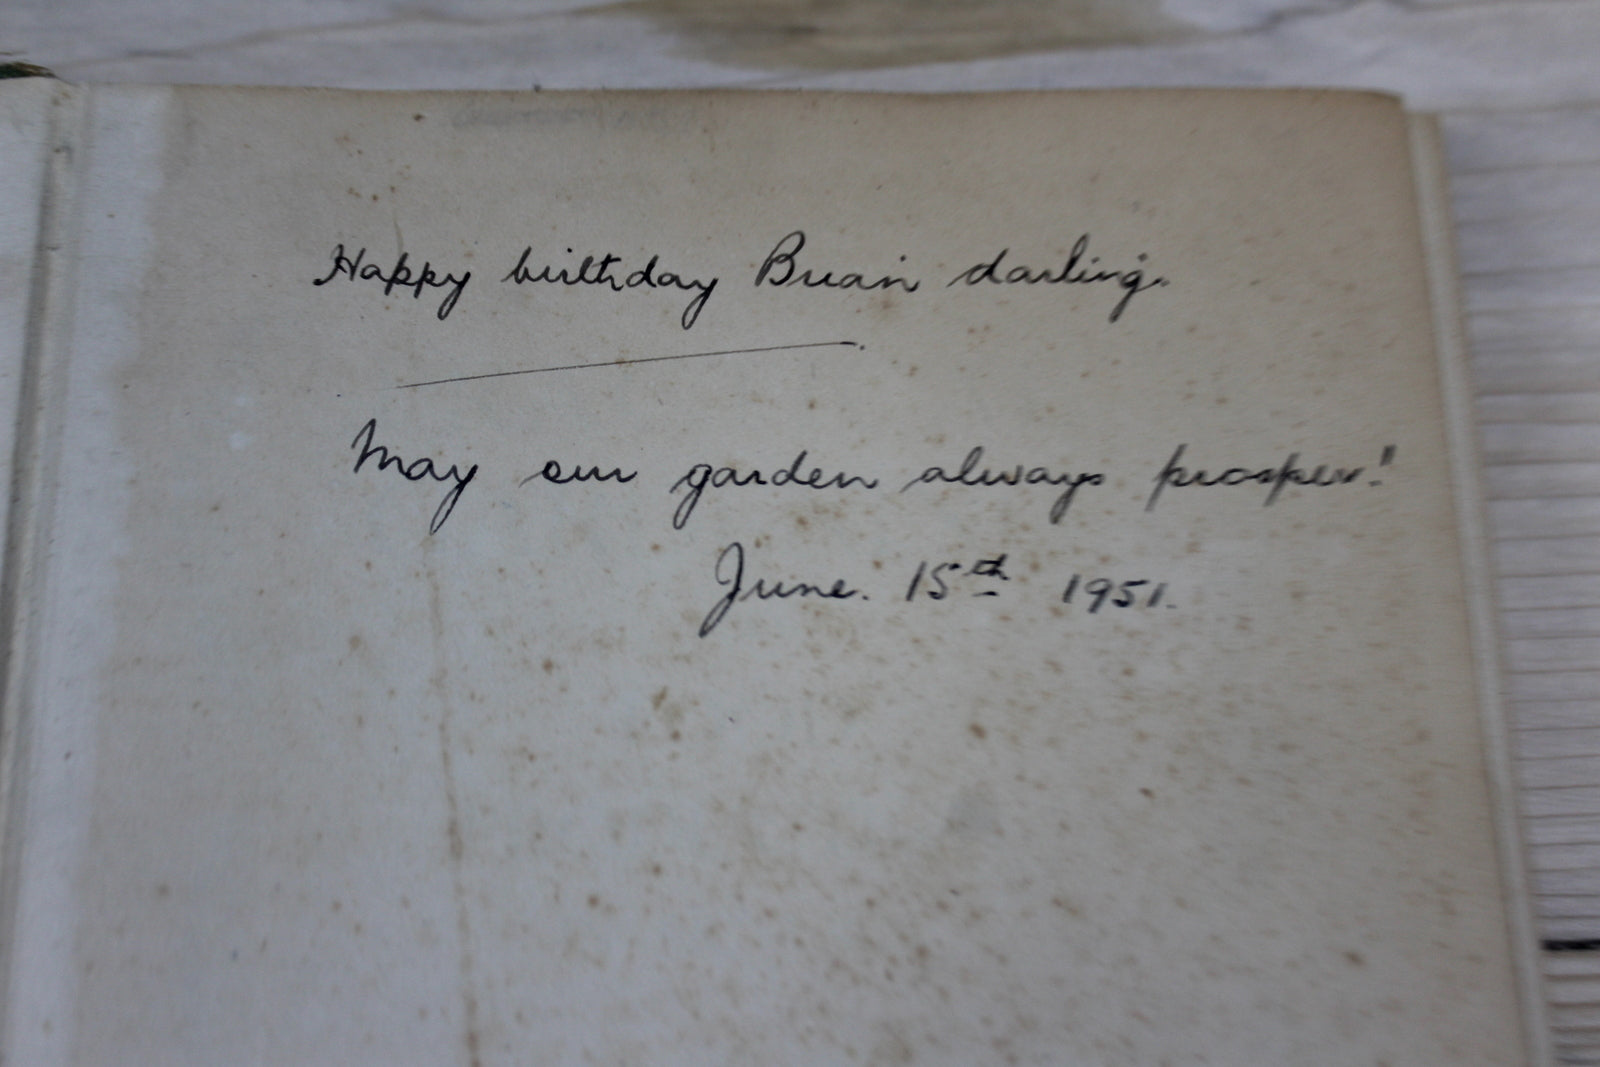 Happy birthday Brian darling.
May our garden always prosper!!
June. 15th 1951.